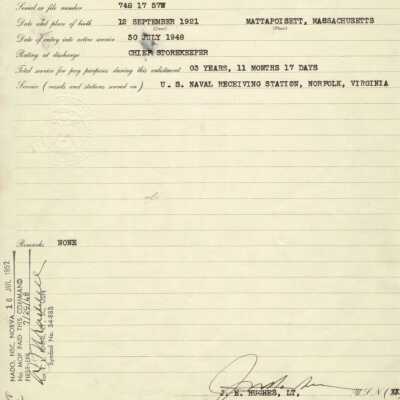 Serial or file number 748 17 57W
Date and place of birth 12 SEPTEMBER 1921 MATTAPOISETT, MASSACHUSETTS
(Date) (Place)
Date of entry into active service 30 JULY 1948
Rating at discharge CHIEF STOREKEEPER
Total service for pay purposes during this enlistment 03 YEARS, 11 MONTHS 17 DAYS
Service (vessels and stations served on) U. S. NAVAL RECEIVING STATION, NORFOLK, VIRGINIA
Remarks NONE
NADO, NSC, NORVA 16 JUL 1952
No MOP PAID THIS COMMAND
7/30/48
Symbol No.
J. E. HUGHES, LT, U S N